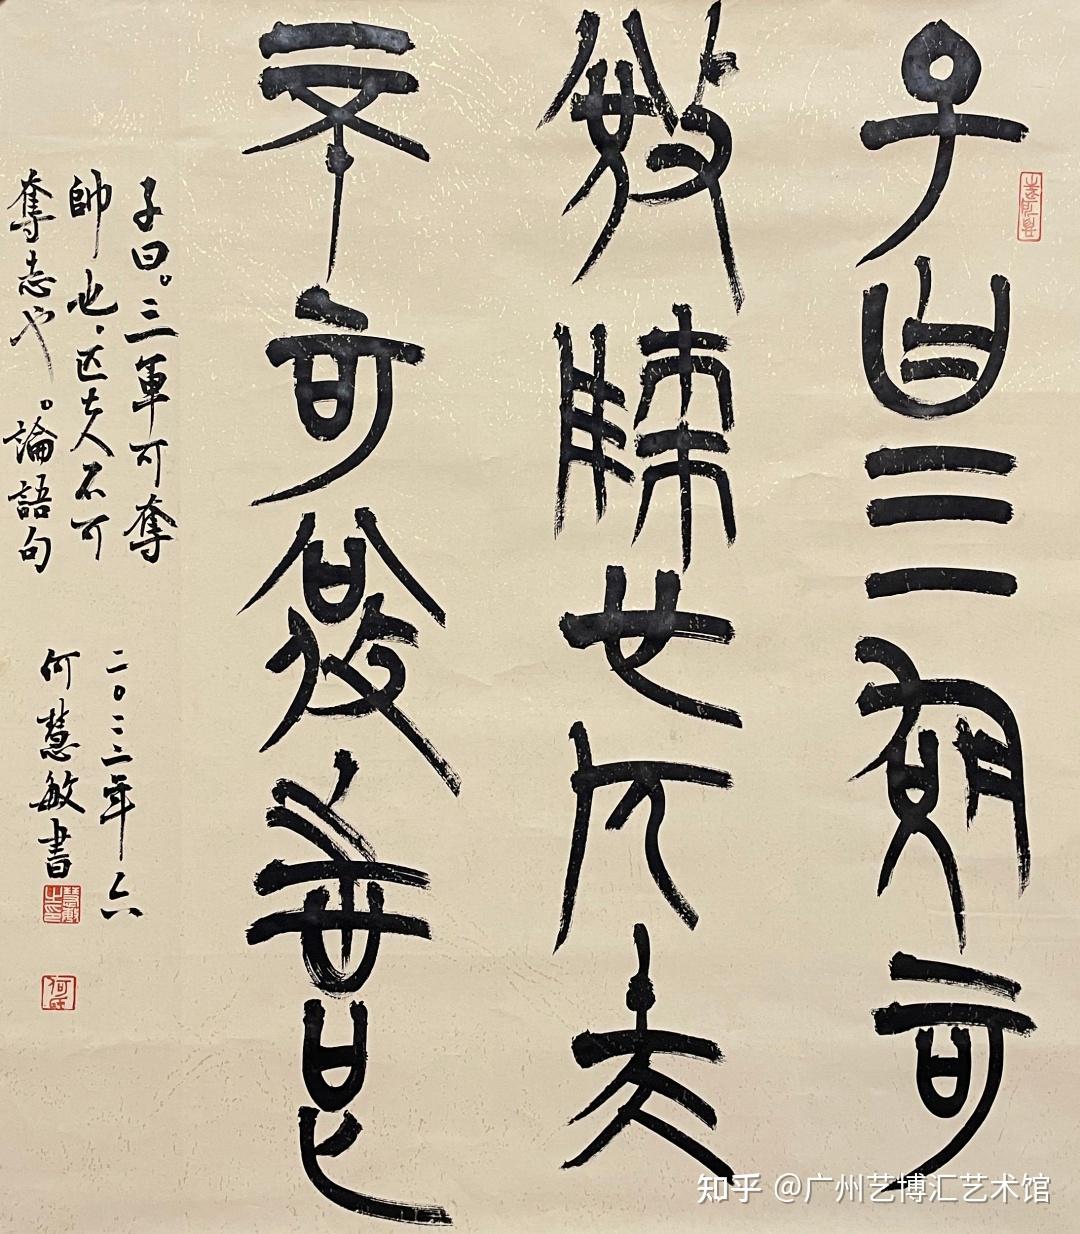 子曰三軍可
奪帥也匹夫
不可奪志也
子曰。三軍可奪
帥也、匹夫不可
奪志也。論語句
二〇二二年六
何慧敏書
慧敏之印
何氏
知乎 @广州艺博汇艺术馆